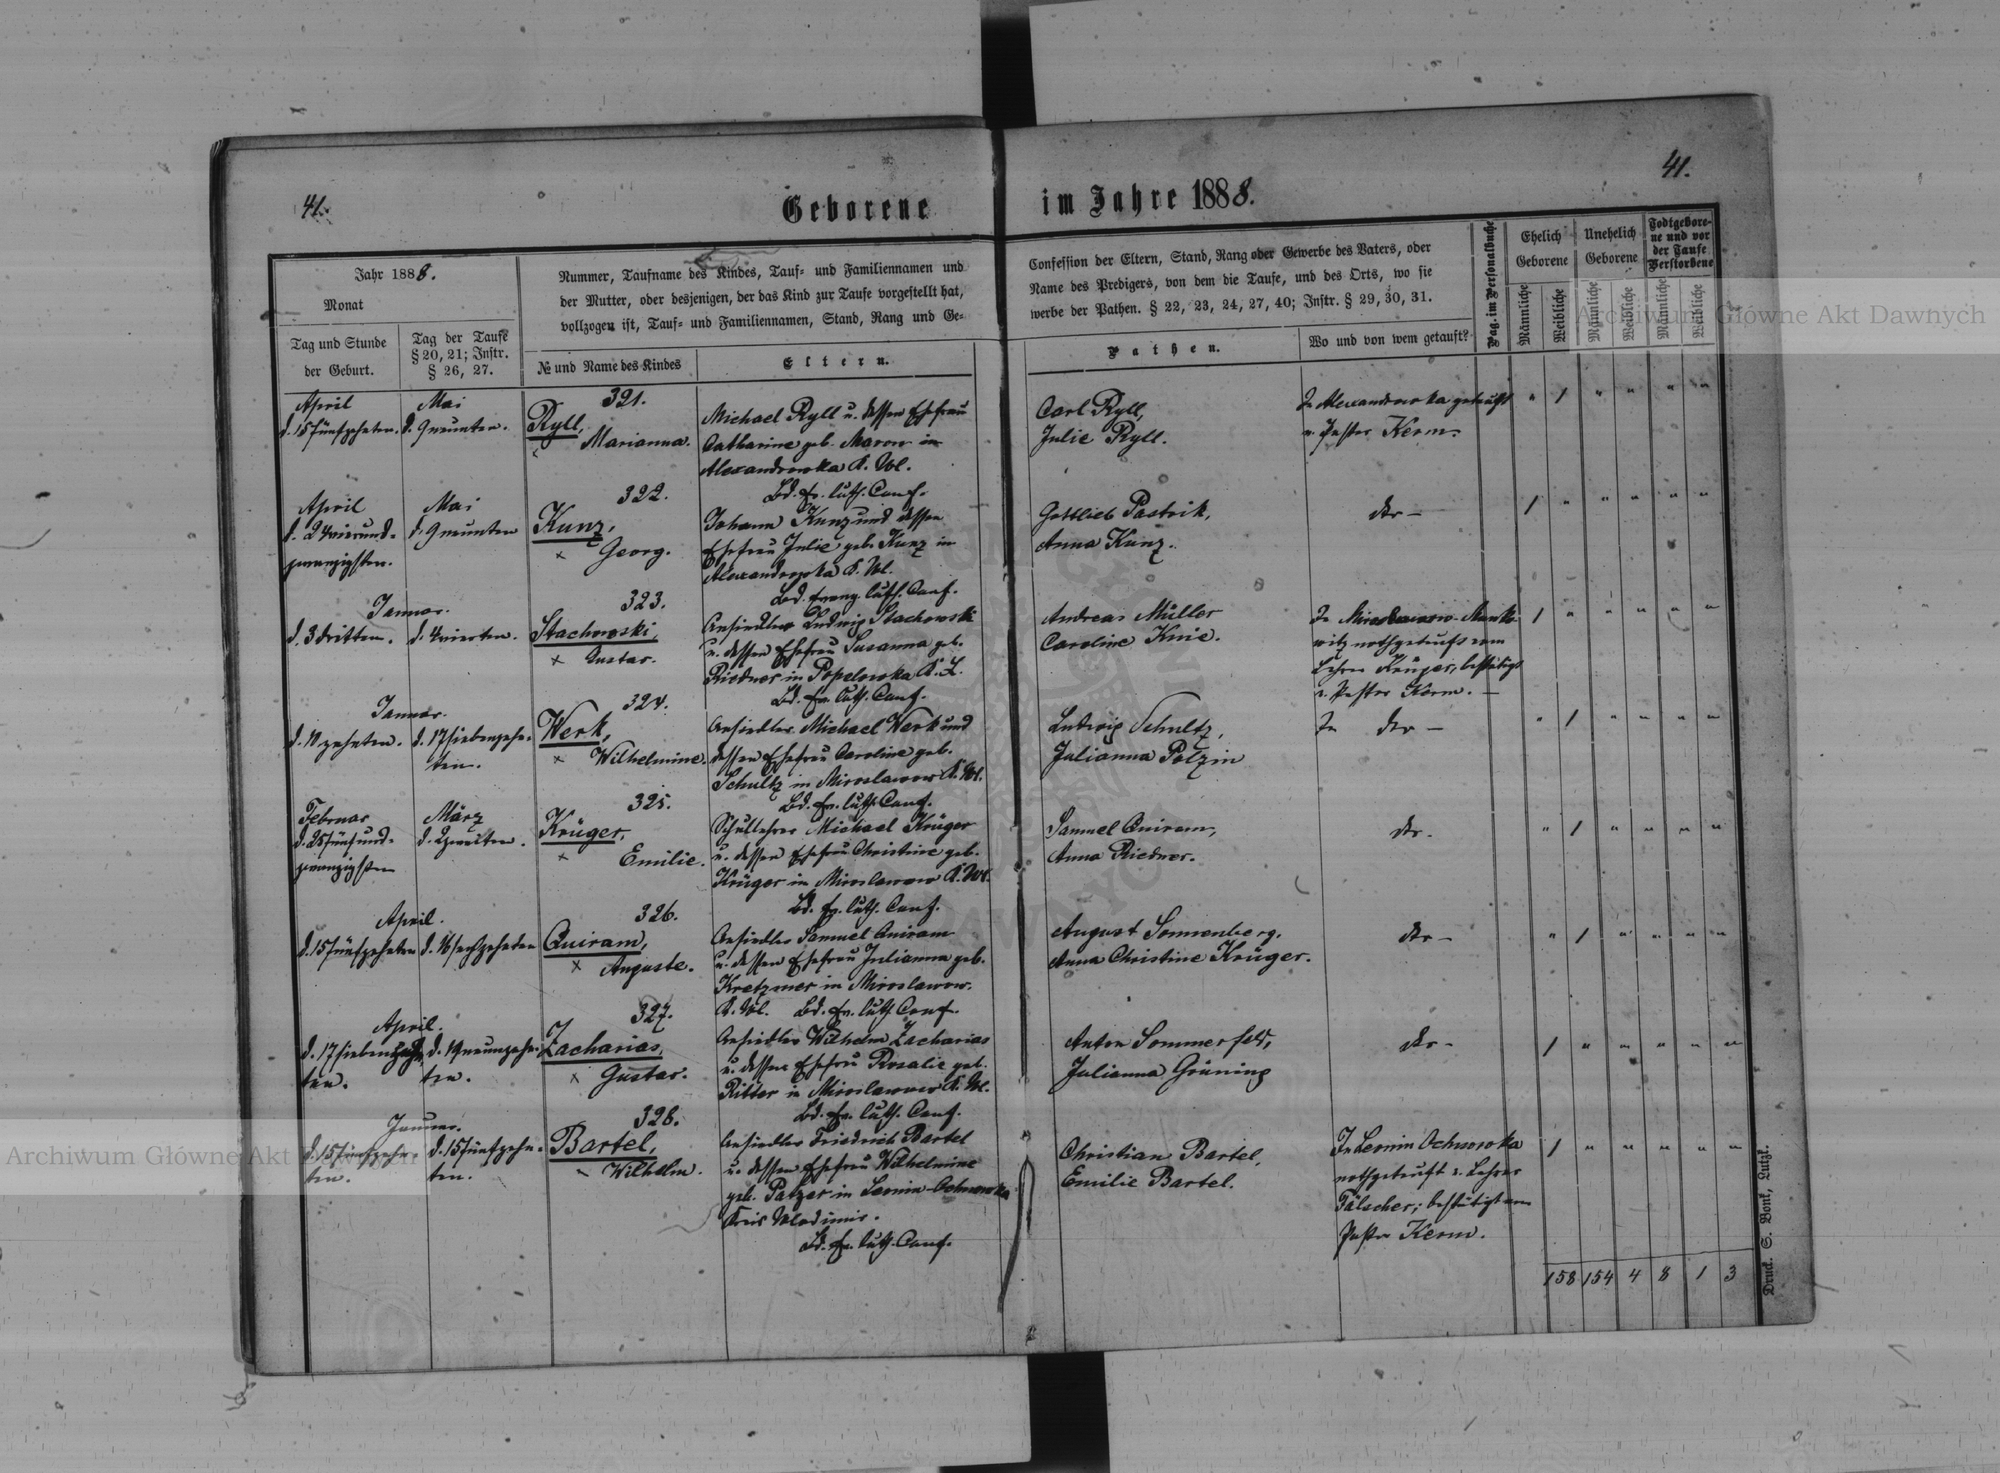 41.
41.
Geborene im Jahre 1888.
Jahr 1888.
Monat
Tag und Stunde
der Geburt.
Tag der Taufe
§ 20, 21; Instr.
§ 26, 27.
Nummer, Taufname des Kindes, Tauf- und Familiennamen und
der Mutter, oder desjenigen, der das Kind zur Taufe vorgestellt hat,
vollzogen ist, Tauf- und Familiennamen, Stand, Rang und Ge-
№ und Name des Kindes
Eltern.
Confession der Eltern, Stand, Rang oder Gewerbe des Vaters, oder
Name des Predigers, von dem die Taufe, und des Orts, wo sie
werbe der Pathen. § 22, 23, 24, 27, 40; Instr. § 29, 30, 31.
Pathen.
Wo und von wem getauft?
Pag. im Personalbuche
Ehelich
Geborene
Unehelich
Geborene
Todtgebore-
ne und vor
der Taufe
Verstorbene
Männliche
Weibliche
Männliche
Weibliche
Männliche
Weibliche
April
d. 15 fünfzehnten.
Mai
d. 9 neunten.
321.
Ryll,
Marianna.
Michael Ryll u. dessen Ehefrau
Catharine geb. Maron in
Alexandrowka K. Wl.
Bd. Ev. luth. Conf.
Carl Ryll,
Julie Ryll.
In Alexandrowka getauft
v. Pastor Kerm.
April
d. 24 vierund-
zwanzigsten.
Mai
d. 9 neunten
322.
Kunz,
× Georg.
Johann Kunz und dessen
Ehefrau Julie geb. Kunz in
Alexandrowka K. Wl.
Bd. evang. luth. Conf.
Gottlieb Pastrik,
Anna Kunz.
dto -
Januar.
d. 3 dritten.
d. 4 vierten.
323.
Stachowski,
× Gustav.
Ansiedler Ludwig Stachowski
u. dessen Ehefrau Susanna geb.
Riedner in Popelowka K. L.
Bd. Ev. luth. Conf.
Andreas Müller
Caroline Knie.
In
witz nothgetauft vom
Lehrer Krüger, bestätigt
v. Pastor Kerm. -
Januar.
d. 10 zehnten.
d. 17 siebenzehn-
ten.
324.
Werk,
× Wilhelmine.
Ansiedler Michael Werk und
dessen Ehefrau Caroline geb.
Schultz in Miroslawow K. Wl.
Bd. Ev. luth. Conf.
Ludwig Schultz,
Julianna Polzin
In dto -
Februar
d. 25 fünfund-
zwanzigsten
März
d. 2 zweiten.
325.
Krüger,
× Emilie.
Schullehrer Michael Krüger
u. dessen Ehefrau Christine geb.
Krüger in Miroslawow K. Wl.
Bd. Ev. luth. Conf.
Samuel Quiram,
Anna Riedner.
dto.
April.
d. 15 fünfzehnten
d. 16 sechzehnten
326.
Quiram,
× Auguste.
Ansiedler Samuel Quiram
u. dessen Ehefrau Julianna geb.
Kretzmer in Miroslawow.
K. Wl. Bd. Ev. luth. Conf.
August Sonnenberg.
Anna Christine Krüger.
dto -
April.
d. 17 siebenzehn-
ten.
d. 19 neunzehn-
ten.
327.
Zacharias,
× Gustav.
Ansiedler Wilhelm Zacharias
u. dessen Ehefrau Rosalie geb.
Ritter in Miroslawow K. Wl.
Bd. Ev. luth. Conf.
Anton Sommerfeld,
Julianna Grüning
dto -
Januar.
d. 15 fünfzehn-
ten.
d. 15 fünfzehn-
ten.
328.
Bartel,
Wilhelm.
Ansiedler Friedrich Bartel
u. dessen Ehefrau Wilhelmine
geb. Patzer in Leonin-Ochnowka
Kreis Wladimir.
Bd. Ev. luth. Conf.
Christian Bartel,
Emilie Bartel.
In Leonin Ochnowka
nothgetauft v. Lehrer
Fälscher; bestätigt vom
Pastor Kerm.
158 154 4 8 1 3
Druck. S. Bonk, Lutzk.
Archiwum Główne Akt Dawnych
Archiwum Główne Akt Dawnych